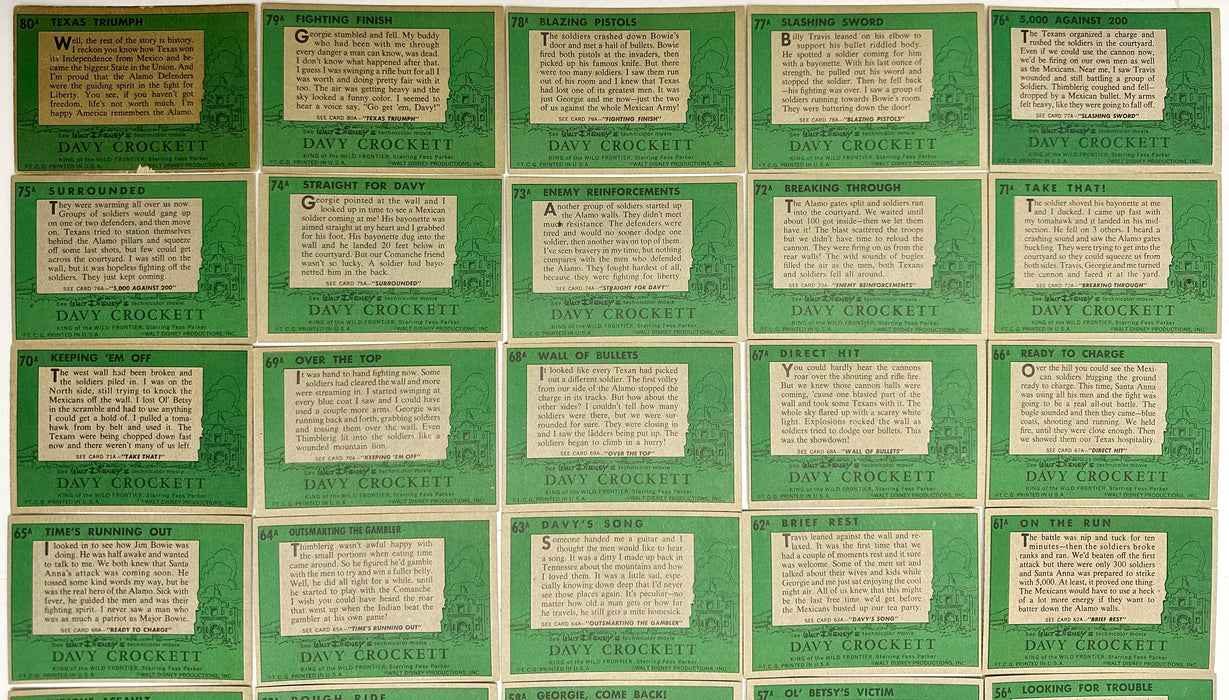 80A TEXAS TRIUMPH
Well, the rest of the story is history.
I reckon you know how Texas won
its Independence from Mexico and be-
came the biggest State in the Union. And
I'm proud that the Alamo Defenders
were the guiding spirit in the fight for
Liberty. You see, if you haven't got
freedom, life's not worth much. I'm
happy America remembers the Alamo.
See Walt Disney's technicolor movie
DAVY CROCKETT
KING of the WILD FRONTIER, Starring Fess Parker
©T.C.G. PRINTED IN U.S.A. ©WALT DISNEY PRODUCTIONS, INC.
79A FIGHTING FINISH
Georgie stumbled and fell. My buddy
who had been with me through
every danger a man can know, was dead.
I don't know what happened after that.
I guess I was swinging a rifle butt for all I
was worth and doing pretty fair with it
too. The air was getting heavy and the
sky looked a funny color. I seemed to
hear a voice say, "Go get 'em, Davy!"
SEE CARD 80A—"TEXAS TRIUMPH"
See Walt Disney's technicolor movie
DAVY CROCKETT
KING of the WILD FRONTIER, Starring Fess Parker
©T.C.G. PRINTED IN U.S.A. ©WALT DISNEY PRODUCTIONS, INC.
78A BLAZING PISTOLS
The soldiers crashed down Bowie's
door and met a hail of bullets. Bowie
fired both pistols at the invaders, then
picked up his famous knife. But there
were too many soldiers. I saw them run
out of his room and I knew that Texas
had lost one of its greatest men. It was
just Georgie and me now—just the two
of us against the whole Mexican Army!
SEE CARD 79A—"FIGHTING FINISH"
See Walt Disney's technicolor movie
DAVY CROCKETT
KING of the WILD FRONTIER, Starring Fess Parker
©T.C.G. PRINTED IN U.S.A. ©WALT DISNEY PRODUCTIONS, INC.
77A SLASHING SWORD
Billy Travis leaned on his elbow to
support his bullet riddled body.
He spotted a soldier coming for him
with a bayonet. With his last ounce of
strength, he pulled out his sword and
stopped the soldier. Then he fell back
—his fighting was over. I saw a group of
soldiers running towards Bowie's room.
They were battering down the door!
SEE CARD 78A—"BLAZING PISTOLS"
See Walt Disney's technicolor movie
DAVY CROCKETT
KING of the WILD FRONTIER, Starring Fess Parker
©T.C.G. PRINTED IN U.S.A. ©WALT DISNEY PRODUCTIONS, INC.
76A 5,000 AGAINST 200
The Texans organized a charge and
rushed the soldiers in the courtyard.
Even if we could use the cannon now,
we'd be firing on our own men as well
as the Mexicans. Near me, I saw Travis
wounded and still battling a group of
Soldiers. Thimblerig coughed and fell—
dropped by a Mexican bullet. My arms
felt heavy, like they were going to fall off.
SEE CARD 77A—"SLASHING SWORD"
See Walt Disney's technicolor movie
DAVY CROCKETT
KING of the WILD FRONTIER, Starring Fess Parker
©T.C.G. PRINTED IN U.S.A. ©WALT DISNEY PRODUCTIONS, INC.
75A SURROUNDED
They were swarming all over us now.
Groups of soldiers would gang up
on one or two defenders, and then move
on. Texans tried to station themselves
behind the Alamo pillars and squeeze
off some last shots, but few could get
across the courtyard. I was still on the
wall, but it was hopeless fighting off the
soldiers. They just kept coming.
SEE CARD 76A—"5,000 AGAINST 200"
See Walt Disney's technicolor movie
DAVY CROCKETT
KING of the WILD FRONTIER, Starring Fess Parker
©T.C.G. PRINTED IN U.S.A. ©WALT DISNEY PRODUCTIONS, INC.
74A STRAIGHT FOR DAVY
Georgie pointed at the wall and I
looked up in time to see a Mexican
soldier coming at me! His bayonette was
aimed straight at my heart and I grabbed
for his foot. His bayonette dug into the
wall and he landed 20 feet below in
the courtyard. But our Comanche friend
wasn't so lucky. A soldier had bayo-
netted him in the back.
SEE CARD 75A—"SURROUNDED"
See Walt Disney's technicolor movie
DAVY CROCKETT
KING of the WILD FRONTIER, Starring Fess Parker
©T.C.G. PRINTED IN U.S.A. ©WALT DISNEY PRODUCTIONS, INC.
73A ENEMY REINFORCEMENTS
Another group of soldiers started up
the Alamo walls. They didn't meet
much resistance. The defenders were
tired and would no sooner dodge one
soldier, then another was on top of them.
I've seen bravery in my time, but nothing
compares with the men who defended
the Alamo. They fought hardest of all,
because they were fighting for liberty.
SEE CARD 74A—"STRAIGHT FOR DAVY"
See Walt Disney's technicolor movie
DAVY CROCKETT
KING of the WILD FRONTIER, Starring Fess Parker
©T.C.G. PRINTED IN U.S.A. ©WALT DISNEY PRODUCTIONS, INC.
72A BREAKING THROUGH
The Alamo gates split and soldiers ran
into the courtyard. We waited until
about 100 got inside—then we let them
have it! The blast scattered the troops
but we didn't have time to reload the
cannon. They were firing on us from the
rear walls! The wild sounds of bugles
filled the air as the men, both Texans
and soldiers fell all around.
SEE CARD 73A—"ENEMY REINFORCEMENTS"
See Walt Disney's technicolor movie
DAVY CROCKETT
KING of the WILD FRONTIER, Starring Fess Parker
©T.C.G. PRINTED IN U.S.A. ©WALT DISNEY PRODUCTIONS, INC.
71A TAKE THAT!
The soldier shoved his bayonette at me
and I ducked. I came up fast with
my tomahawk and it landed in his mid-
section. He fell on 3 others. I heard a
crashing sound and saw the Alamo gates
buckling. They were trying to get into the
courtyard so they could squeeze us from
both sides. Travis, Georgie and me turned
the cannon and faced it at the yard.
SEE CARD 72A—"BREAKING THROUGH"
See Walt Disney's technicolor movie
DAVY CROCKETT
KING of the WILD FRONTIER, Starring Fess Parker
©T.C.G. PRINTED IN U.S.A. ©WALT DISNEY PRODUCTIONS, INC.
70A KEEPING 'EM OFF
The west wall had been broken and
the soldiers piled in. I was on the
North side, still trying to knock the
Mexicans off the wall. I lost Ol' Betsy
in the scramble and had to use anything
I could get a hold of. I pulled a toma-
hawk from by belt and used it. The
Texans were being chopped down fast
now and there weren't many of us left.
SEE CARD 71A—"TAKE THAT!"
See Walt Disney's technicolor movie
DAVY CROCKETT
KING of the WILD FRONTIER, Starring Fess Parker
©T.C.G. PRINTED IN U.S.A. ©WALT DISNEY PRODUCTIONS, INC.
69A OVER THE TOP
It was hand to hand fighting now. Some
soldiers had cleared the wall and more
were streaming in. I started swinging at
every blue coat I saw and I could have
used a couple more arms. Georgie was
running back and forth, grabbing soldiers
and tossing them over the wall. Even
Thimblerig lit into the soldiers like a
wounded mountain lion.
SEE CARD 70A—"KEEPING 'EM OFF"
See Walt Disney's technicolor movie
DAVY CROCKETT
KING of the WILD FRONTIER, Starring Fess Parker
©T.C.G. PRINTED IN U.S.A. ©WALT DISNEY PRODUCTIONS, INC.
68A WALL OF BULLETS
It looked like every Texan had picked
out a different soldier. The first volley
from our side of the Alamo stopped the
charge in its tracks. But how about the
other sides? I couldn't tell how many
soldiers were there, but we were sur-
rounded for sure. They were closing in
and I saw the ladders being put up. The
soldiers began to climb in a hurry!
SEE CARD 69A—"OVER THE TOP"
See Walt Disney's technicolor movie
DAVY CROCKETT
KING of the WILD FRONTIER, Starring Fess Parker
©T.C.G. PRINTED IN U.S.A. ©WALT DISNEY PRODUCTIONS, INC.
67A DIRECT HIT
You could hardly hear the cannons
roar over the shouting and rifle fire.
But we knew those cannon balls were
coming, 'cause one blasted part of the
wall and took some Texans with it. The
whole sky flared up with a scarey white
light. Explosions rocked the wall as
soldiers tried to dodge our bullets. This
was the showdown!
SEE CARD 68A—"WALL OF BULLETS"
See Walt Disney's technicolor movie
DAVY CROCKETT
KING of the WILD FRONTIER, Starring Fess Parker
©T.C.G. PRINTED IN U.S.A. ©WALT DISNEY PRODUCTIONS, INC.
66A READY TO CHARGE
Over the hill you could see the Mexi-
can soldiers hugging the ground
ready to charge. This time, Santa Anna
was using all his men and the fight was
going to be a real all-out battle. The
bugle sounded and then they came—blue
coats, shooting and running. We held
fire, until they were close enough. Then
we showed them our Texas hospitality.
SEE CARD 67A—"DIRECT HIT"
See Walt Disney's technicolor movie
DAVY CROCKETT
KING of the WILD FRONTIER, Starring Fess Parker
©T.C.G. PRINTED IN U.S.A. ©WALT DISNEY PRODUCTIONS, INC.
65A TIME'S RUNNING OUT
I looked in to see how Jim Bowie was
doing. He was half awake and wanted
to talk to me. We both knew that Santa
Anna's attack was coming soon. He
tossed some kind words my way, but he
was the real hero of the Alamo. Sick with
fever, he guided the men and was their
fighting spirit. I never saw a man who
was as much a patriot as Major Bowie.
SEE CARD 66A—"READY TO CHARGE"
See Walt Disney's technicolor movie
DAVY CROCKETT
KING of the WILD FRONTIER, Starring Fess Parker
©T.C.G. PRINTED IN U.S.A. ©WALT DISNEY PRODUCTIONS, INC.
64A OUTSMARTING THE GAMBLER
Thimblerig wasn't awful happy with
the small portions when eating time
came around. So he figured he'd gamble
with the men to try and win a fuller belly.
Well, he did all right for a while, until
he started to play with the Comanche.
I wish you could have heard the roar
that went up when the Indian beat the
gambler at his own game!
SEE CARD 65A—"TIME'S RUNNING OUT"
See Walt Disney's technicolor movie
DAVY CROCKETT
KING of the WILD FRONTIER, Starring Fess Parker
©T.C.G. PRINTED IN U.S.A. ©WALT DISNEY PRODUCTIONS, INC.
63A DAVY'S SONG
Someone handed me a guitar and I
thought the men would like to hear
a song. It was a ditty I made up back in
Tennessee about the mountains and how
I loved them. It was a little sad, espe-
cially knowing down deep that I'd never
see those places again. It's peculiar—no
matter how old a man gets or how far
he travels, he still gets a mite homesick.
SEE CARD 64A—"OUTSMARTING THE GAMBLER"
See Walt Disney's technicolor movie
DAVY CROCKETT
KING of the WILD FRONTIER, Starring Fess Parker
©T.C.G. PRINTED IN U.S.A. ©WALT DISNEY PRODUCTIONS, INC.
62A BRIEF REST
Travis leaned against the wall and re-
laxed. It was the first time that we
had a couple of moments rest and it sure
was welcome. Some of the men sat and
talked about their wives and kids while
Georgie and me just sat enjoying the cool
night air. All of us knew that this might
be the last free time we'd get before
the Mexicans busted up our tea party.
SEE CARD 63A—"DAVY'S SONG"
See Walt Disney's technicolor movie
DAVY CROCKETT
KING of the WILD FRONTIER, Starring Fess Parker
©T.C.G. PRINTED IN U.S.A. ©WALT DISNEY PRODUCTIONS, INC.
61A ON THE RUN
The battle was nip and tuck for ten
minutes—then the soldiers broke
ranks and ran. We'd beaten off the first
attack but there were only 300 soldiers
and Santa Anna was prepared to strike
with 5,000. At least, it proved one thing.
The Mexicans would have to use a heck
of a lot more energy if they want to
batter down the Alamo walls.
SEE CARD 62A—"BRIEF REST"
See Walt Disney's technicolor movie
DAVY CROCKETT
KING of the WILD FRONTIER, Starring Fess Parker
©T.C.G. PRINTED IN U.S.A. ©WALT DISNEY PRODUCTIONS, INC.
ASSAULT
ROUGH RIDE
58A GEORGIE, COME BACK!
57A OL' BETSY'S VICTIM
56A LOOKING FOR TROUBLE